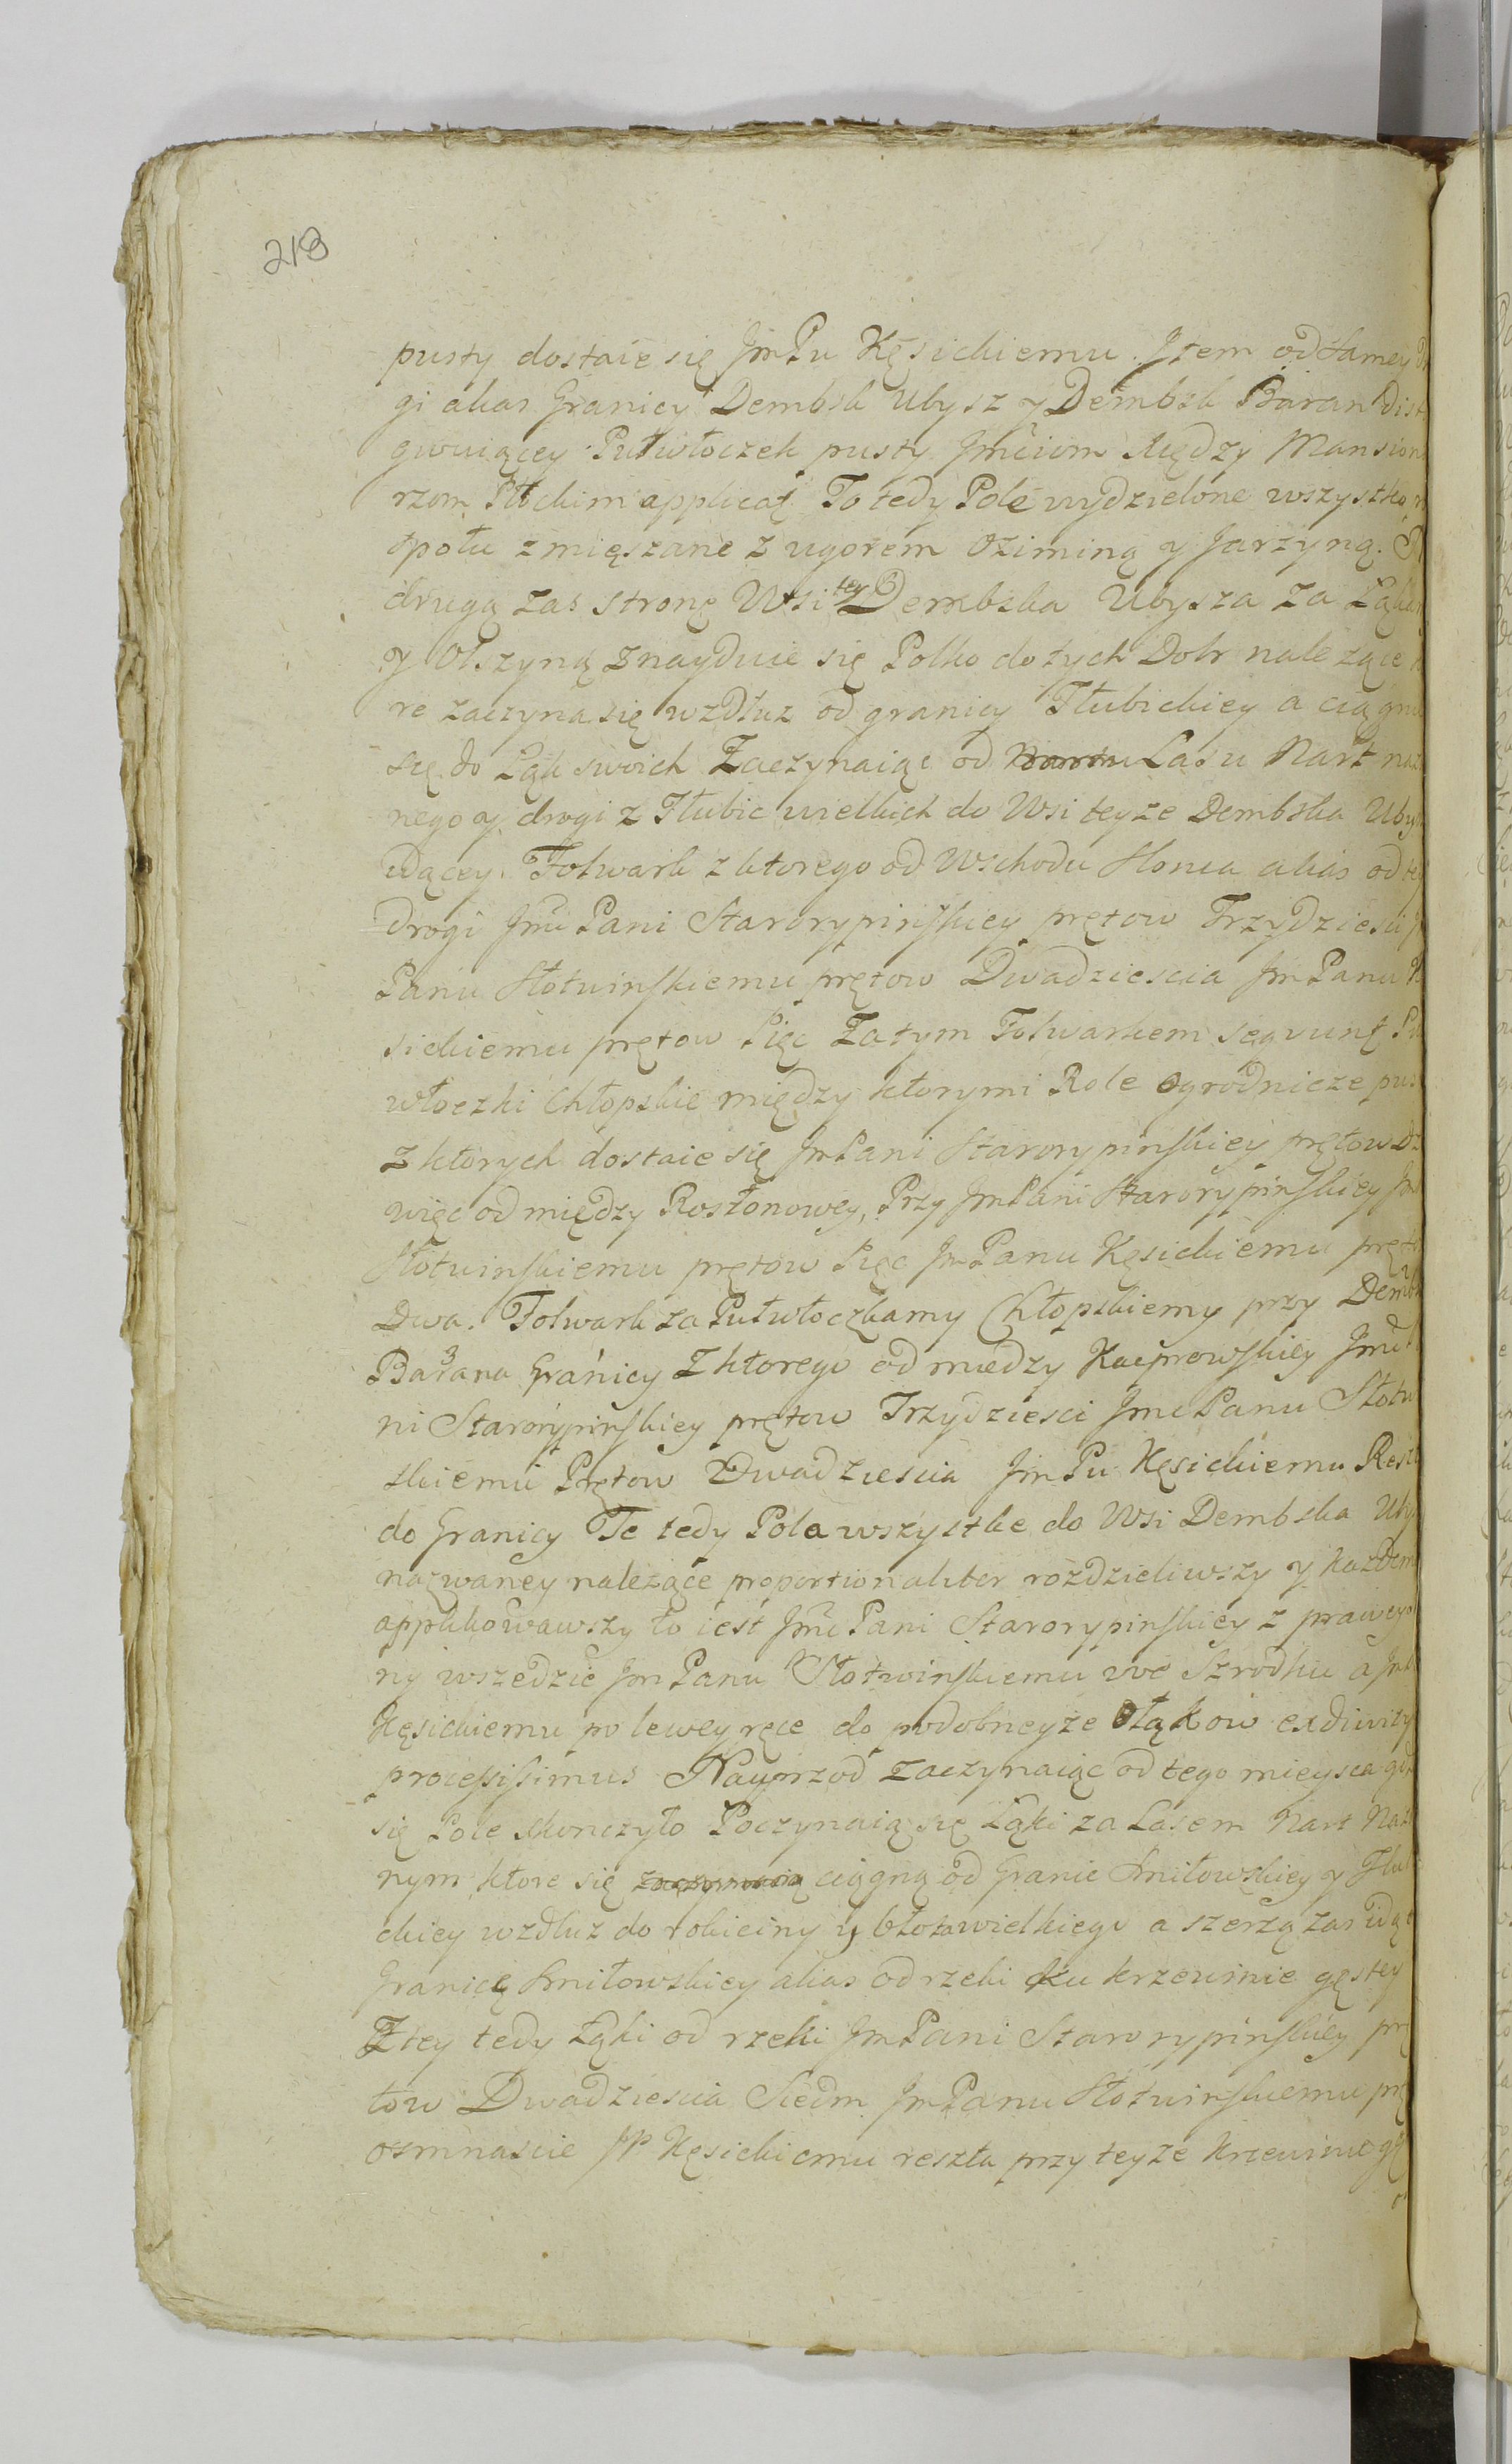 218
pusty dostaie się Jm Pu Kęsickiemu. Item od samey
gi alias Granicy Dembsk Ubysz y Dembsk Baran dist
gwuiącey Pułwłoczek pusty Jmciom Xiędzy Mansion
rzom Płockim applicat. To tedy Pole wydzielone wszystko
społu zmięszane z ugorem Oziminą y Jarzyną.
drugą zas stronę Wsi tey Dembska Ubysza za Łąka
y Olszyną znayduie się Polko do tych Dobr należące
re zaczyna się wzdłuz od granicy Tłubickiey a ciągnie
się do Łąk swoich Zaczynaiąc od Lasu Nart naz
nego y drogi z Tłubic wielkich do Wsi teyże Dembska Uby
idącey. Folwark z ktorego od Wschodu Słonca alias od tey
drogi Jmci Pani Starorypinskiey prętow Trzydziesci
Panu Słotwinskiemu prętow Dwadziescia Jm Panu
sickiemu prętow Pięc Za tym Folwarkem seqvunt Pu
włoczki Chłopskie między ktorymi Role Ogrodnicze pus
z ktorych dostaie się Jm Pani Starorypinskiey prętow
więc od miedzy Rosłonowey, Przy Jm Pani Starorypinskiey Jm
Słotwinskiemu prętow Pięc Jm Panu Kęsickiemu pręto
Dwa. Folwark za Pułwłoczkamy Chłopskiemy przy Demb
Barana Granicy Z ktorego od miedzy Kacprowskiey Jmci
ni Starorypinskiey prętow Trzydziesci Jmci Panu Słotw
skiemu Prętow Dwadziescia Jm Pu Kęsickiemu Reszt
do Granicy Te tedy Pola wszystkie do Wsi Dembska Uby
nazwaney należące proportionaliter rozdzieliwszy y każdem
applikowawszy to iest Jmci Pani Starorypinskiey z prawey
ny wszedzie Jm Panu Słotwinskiemu we Szrodku a Jm
Kęsickiemu po lewey ręce do podobneyże Łąkow exdivity
processissimus Nayprzod zaczynaiąc od tego mieysca gd
się Pole skonczyło Poczynaią się Łąki za Lasem Nart Naz
nym ktore się zaczynaią ciągną od Granic Smiłowskiey y Tłub
ckiey wzdłuz do rokiciny y błota wielkiego a szerzą zas idąc
Granicę Smiłowskiey alias od rzeki ku krzewinie gęstey
Z tey tedy Łąki od rzeki Jm Pani Starorypinskiey prę
tow Dwadziescia Siedm Jm Panu Słotwinskiemu prę
osmnascie JP Kęsickiemu reszta przy teyże krzewinie gę